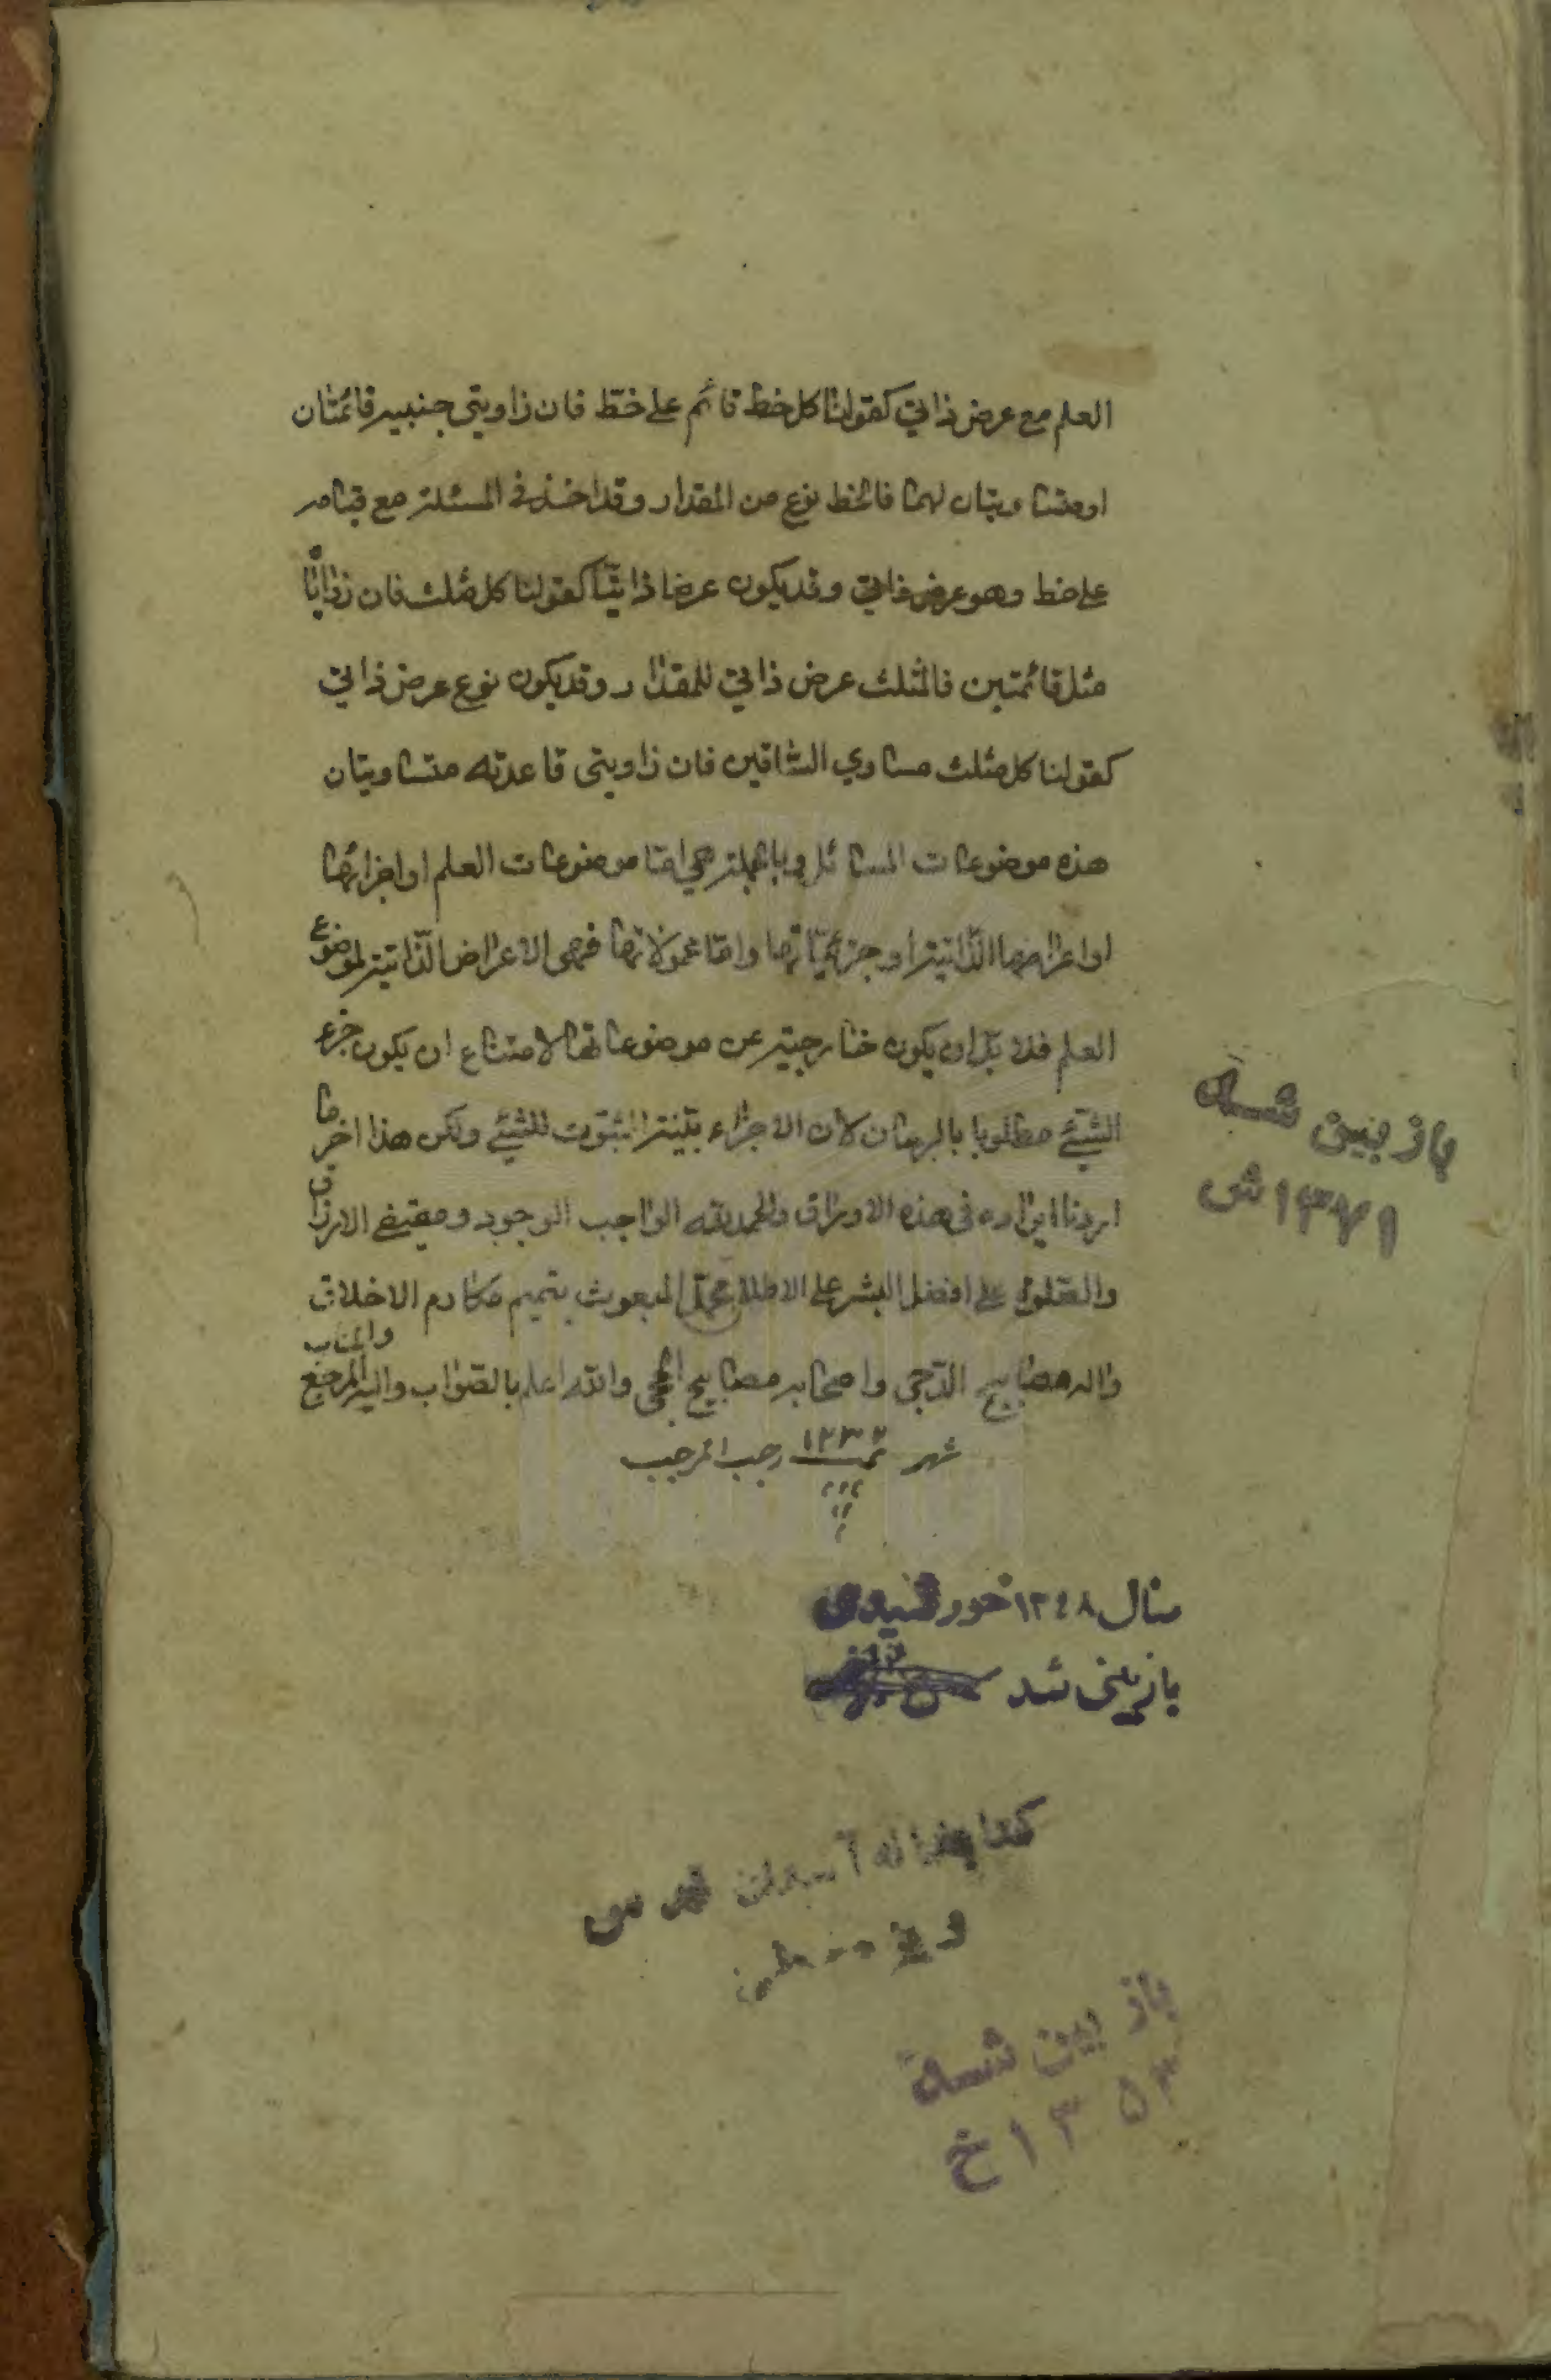 العلم مع عرض ذاتي كقولنا كل خط قائم على خط فان زاويتي جنبيه قائمتان
او متساويتان لهما فالخط نوع من المقدار وقد اخذ في المسئلة مع قيامه
على خط وهو عرض ذاتي وقد يكون عرضا ذاتيّا كقولنا كل مثلث فان زواياه
مثل قائمتين فالمثلث عرض ذاتي للمقدار وقد يكون نوع عرض ذاتي
كقولنا كل مثلث مساوي الساقين فان زاويتي قاعدته متساويتان
هذه موضوعات المسائل وبالجملة هي امّا موضوعات العلم او اجزائها
او اعراضها الذّاتية او جزئيّاتها وامّا محمولاتها فهى الاعراض الذّاتية لموضوع
العلم فلا بدّ ان يكون خارجية عن موضوعاتها لامتناع ان يكون جزء
الشيئ مطلوبا بالبرهان لان الاجزاء بيّنة الثبوت للشيئ ولكن هذا اخر ما
اردنا ايراده في هذه الاوراق والحمد لله الواجب الوجود ومفيض الارزاق
والصّلوة على افضل البشر على الاطلاق محمّد المبعوث بتميم مكارم الاخلاق
واله مصابيح الدّجى واصحابه مصابيح الحجى والله اعلم بالصّواب واليه المرجع والمئاب
شهر تمت ١٢٣٢ رجب المرجب
باز بین شد
۱۳۷۱ ش
سال ۱۳۴۸ خورشیدی
بازبینی شد
کتابخانه آستان قدس
باز بین شد
۱۳۵۳ خ